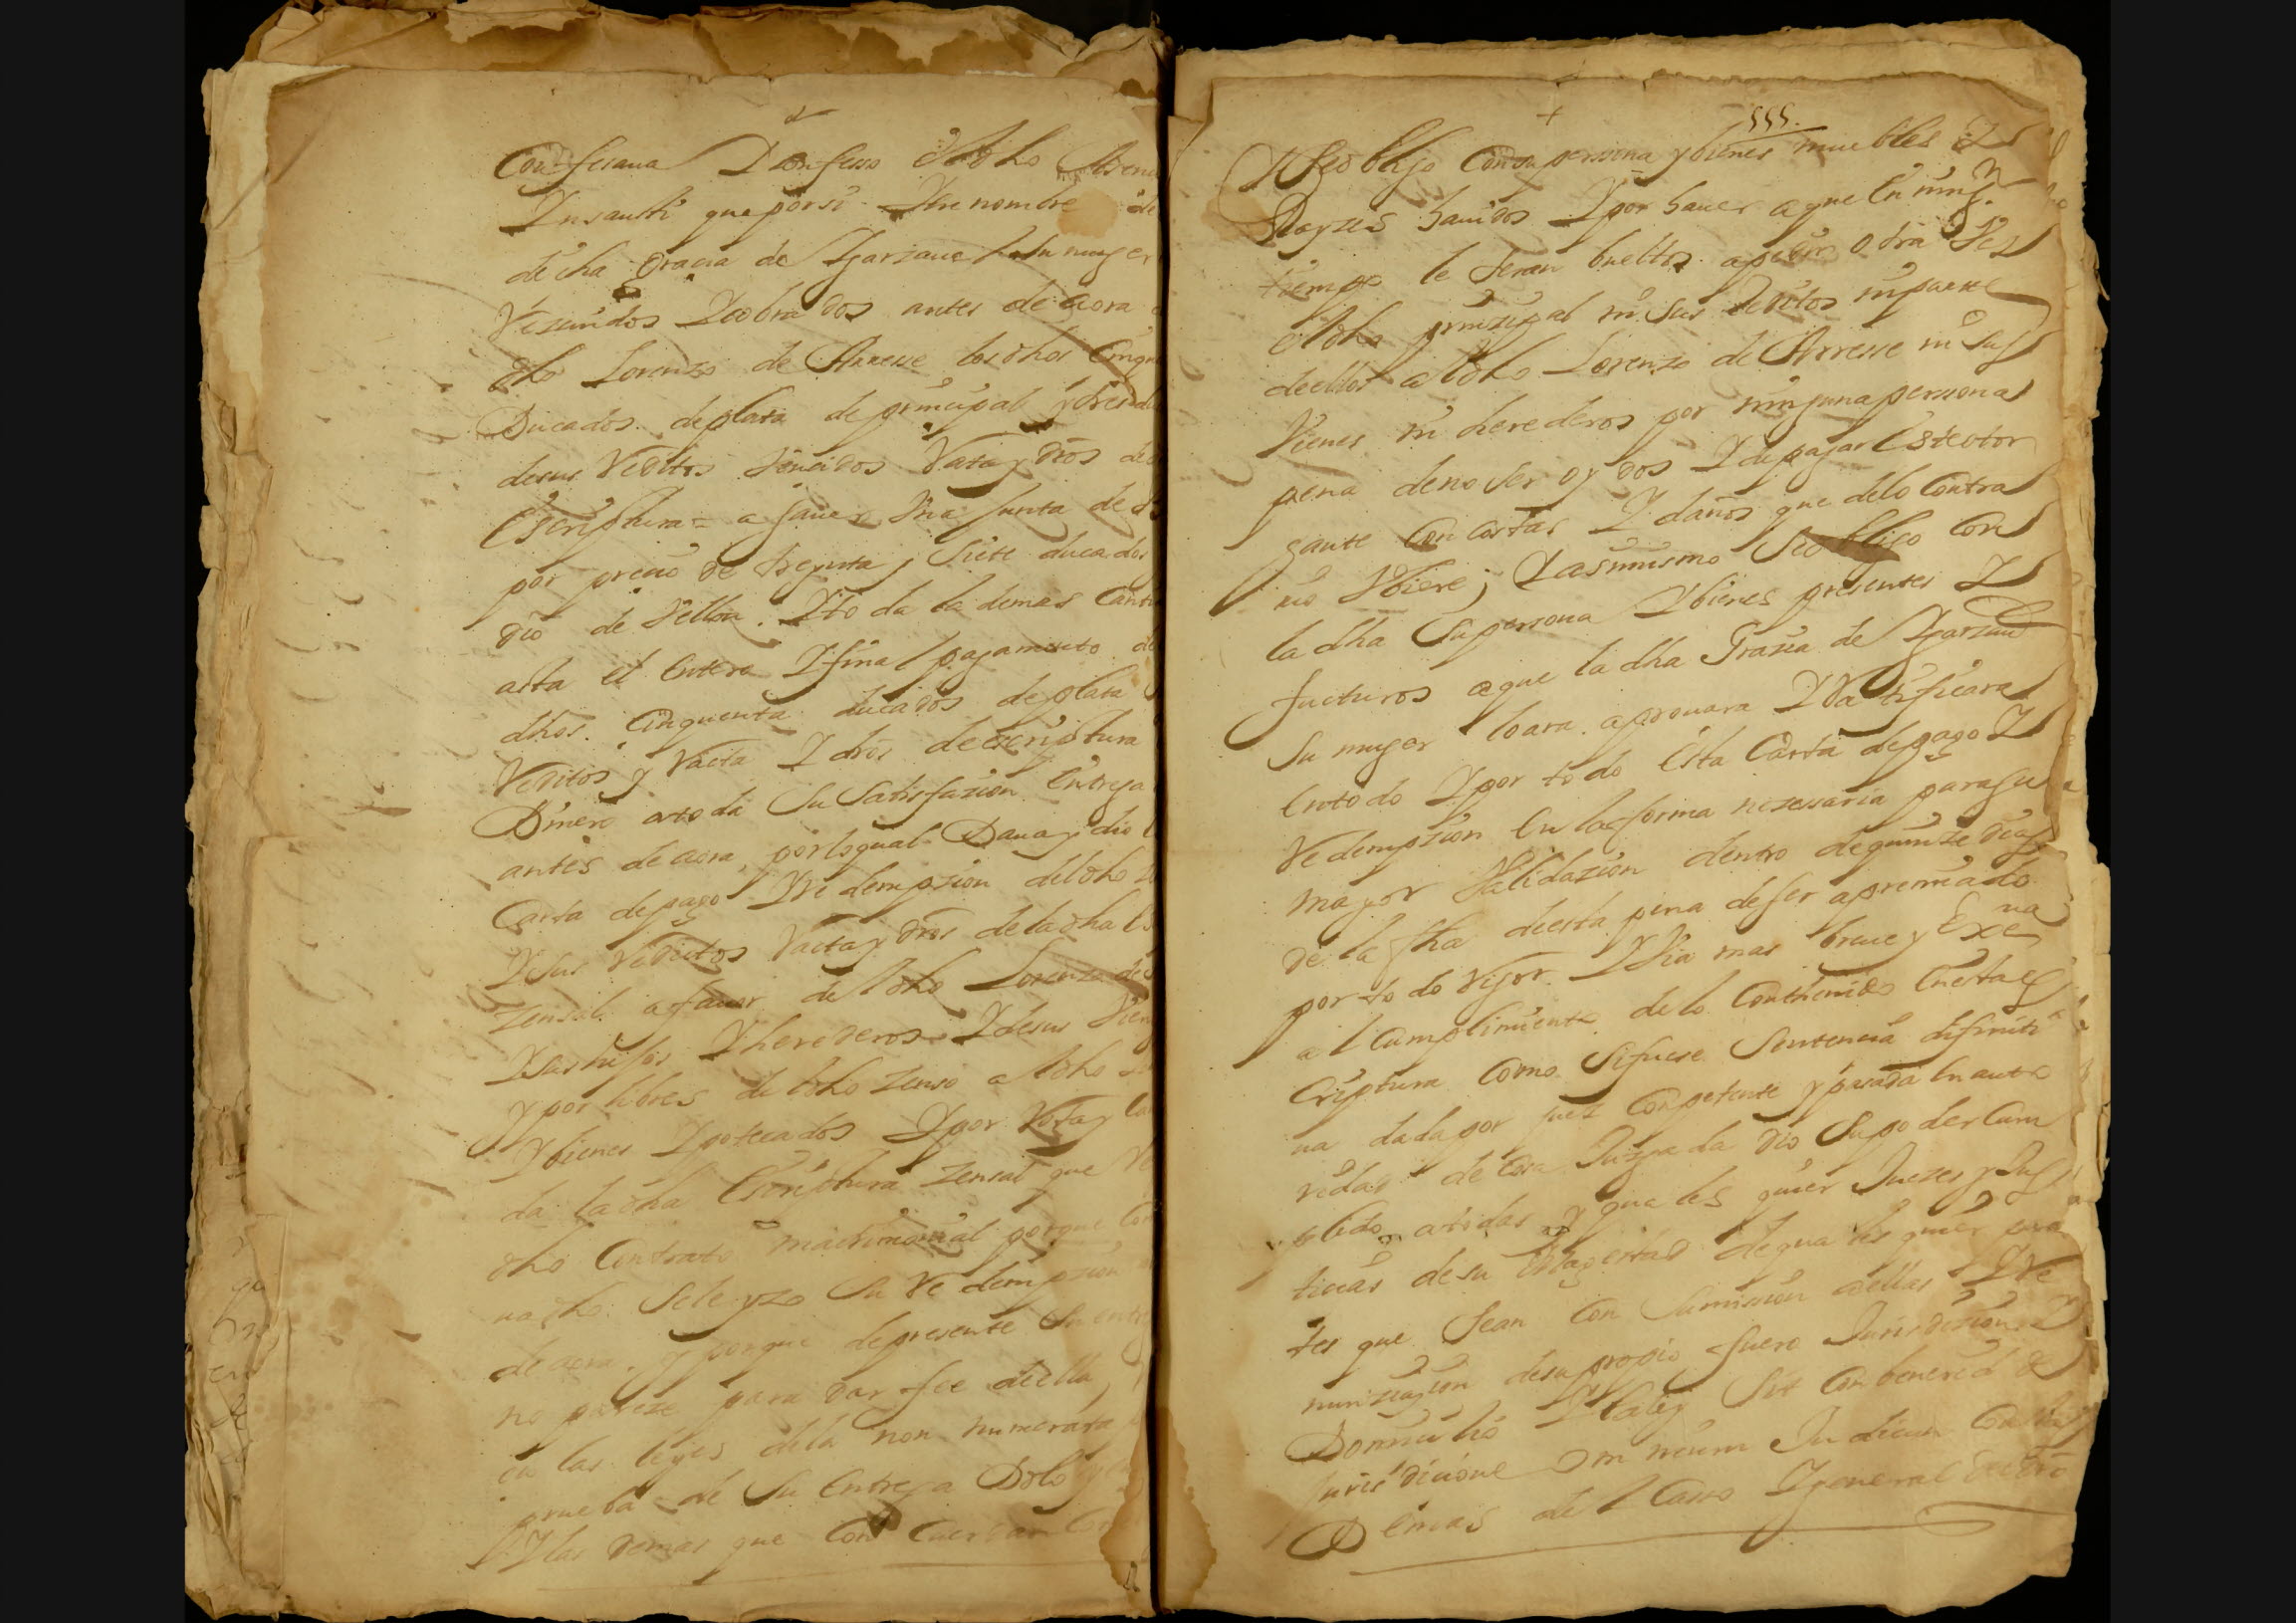 Confesaua Y confesso el dho
Ynsausti que por si Y en nombre de
dicha Gracia de Ygarzaual su muger
Resciuidos Y cobrados antes de aora
dho Lorenzo de Arresse los dhos Cinqu
Ducados de plata de principal y dies du
de sus Reditos Vencidos Rata y dros de
Escriptura = a sauer Vna Junta de
por precio de treynta y Siete ducados
dio de Vellon. Y toda la demas Canti
asta el Entero Y final pagamento de
dhos Cinquenta ducados de plata
Reditos y Racta Y dros de escriptura
Dinero a toda Su Satisfazion Entrega
antes de aora, por lo qual Daua y dio
Carta de pago Y Redempzion del dho
Y sus Reditos Racta y dros de la dha Es
zensal a fauor del dho Lorenzo de
Y sus hijos Y herederos Y de sus Vien
y por libres del dho Zenso a los dho
Y bienes Ypotecados Y por Rota y Can
da la dha Escriptura Zensal que
dho Contrato matrimonial porque Con
ua dho Se le yzo Su Redempzion
de aora, y porque de presente Su entre
no pareze para dar fee de ella,
en las leyes de la non numerata
prueba de Su Entrega Dolo y en
Y las demas que Con Cuerdan Con
SSS.
Y Se obligo Con su persona y bienes muebles Y
Rayzes hauidos Y por hauer a que En ning.n
tiempo le Seran bueltos a pedir otra Vez
el dho prinzipal ni Sus Reditos ni parte
de ellos al dho Lorenzo de Arresse ni Sus
Vienes ni herederos por ninguna persona
pena de no Ser oydos Y de pagar Este otor
gante Con Costas Y daños que de lo Contra
rio Vbiere; Y asimismo Se obligo Con
la dha Su persona Y bienes presentes Y
fucturos a que la dha Grazia de Ygarzau
Su muger loara aprouara Y Ratificara
En todo Y por todo Esta Carta de pago Y
Redempzion En la forma nezessaria para su
mayor Validazion dentro de quinze dias
de la fha de esta pena de ser apremiado
por todo Rigor Y Via mas breue y Exeua
al Cumplimiento de lo Conthenido En esta es
Criptura Como Si fuese Sentencia difiniti
ua dada por juez Conpetente y pasada En auto
ridad de Cosa Juzgada dio Su poder Cum
plido a todas y quales quier Juezes y Jus
ticias de su Magestad de quales quier par
tes que Sean Con Sumission a ellas Y Re
nunziazion de su propio fuero Jurisdizion
Domicilio Y la ley Sit Conbenerid de
Jurisdicione Omnium Judicun Con las
Demas de el Casso Y general